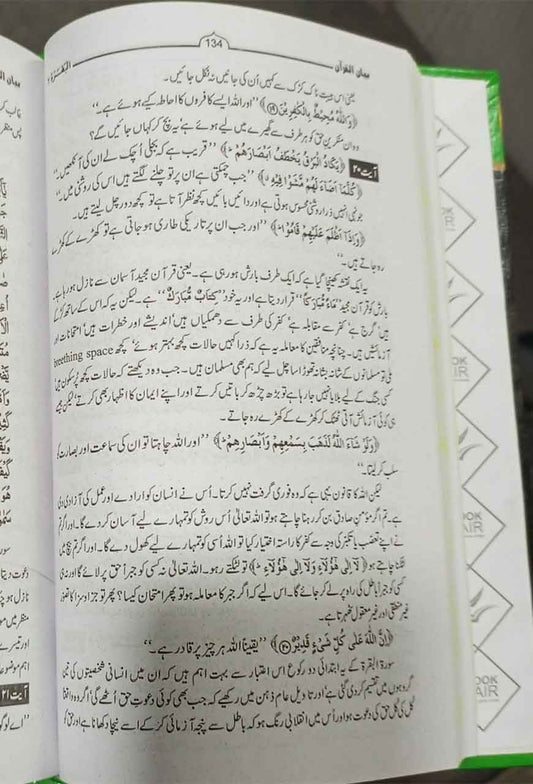 بیان القرآن 134 البقرۃ ۲
یعنی اس ہیبت ناک کڑک سے کہیں اُن کی جانیں نہ نکل جائیں۔
﴿وَاللّٰهُ مُحِیْطٌ بِالْكٰفِرِیْنَ ﴿۱۹﴾﴾ ’’اور اللہ ایسے کافروں کا احاطہ کیے ہوئے ہے۔‘‘
وہ ان منکرین حق کو ہر طرف سے گھیرے میں لیے ہوئے ہے‘ یہ بچ کر کہاں جائیں گے؟
آیت ۲۰ ﴿یَكَادُ الْبَرْقُ یَخْطَفُ اَبْصَارَهُمْ ؕ﴾ ’’قریب ہے کہ بجلی اُچک لے ان کی آنکھیں۔‘‘
﴿كُلَّمَاۤ اَضَآءَ لَهُمْ مَّشَوْا فِیْهِ ۙ﴾ ’’جب چمکتی ہے ان پر تو چلنے لگتے ہیں اس کی روشنی میں۔‘‘
جونہی انہیں ذرا روشنی محسوس ہوتی ہے اور دائیں بائیں کچھ نظر آتا ہے تو کچھ دور چل لیتے ہیں۔
﴿وَاِذَاۤ اَظْلَمَ عَلَیْهِمْ قَامُوْا ؕ﴾ ’’اور جب ان پر تاریکی طاری ہو جاتی ہے تو کھڑے کے کھڑے
رہ جاتے ہیں۔‘‘
یہ ایک نقشہ کھینچا گیا ہے کہ ایک طرف بارش ہو رہی ہے۔ یعنی قرآن مجید آسمان سے نازل ہو رہا ہے۔
بارش کو قرآن مجید ’’مَآءً مُّبٰرَكًا‘‘ قرار دیتا ہے اور یہ خود ’’كِتٰبٌ مُّبٰرَكٌ‘‘ ہے۔ لیکن یہ کہ اس کے ساتھ کڑکے
ہیں‘ گرج ہے‘ کفر سے مقابلہ ہے‘ کفر کی طرف سے دھمکیاں ہیں‘ اندیشے اور خطرات ہیں‘ امتحانات اور
آزمائشیں ہیں۔ چنانچہ منافقین کا معاملہ یہ ہے کہ ذرا کہیں حالات کچھ بہتر ہوئے‘ کچھ breething space
ملی تو مسلمانوں کے شانہ بشانہ تھوڑا سا چل لیے کہ ہم بھی مسلمان ہیں۔ جب وہ دیکھتے کہ حالات کچھ پُرسکون ہیں
کسی جنگ کے لیے بلایا نہیں جا رہا ہے تو بڑھ چڑھ کر باتیں کرتے اور اپنے ایمان کا اظہار بھی کرتے‘ لیکن جیسے
ہی کوئی آزمائش آتی ٹھٹک کر کھڑے کے کھڑے رہ جاتے۔
﴿وَلَوْ شَآءَ اللّٰهُ لَذَهَبَ بِسَمْعِهِمْ وَاَبْصَارِهِمْ ؕ﴾ ’’اور اللہ چاہتا تو ان کی سماعت اور بصارت کو
سلب کر لیتا۔‘‘
لیکن اللہ کا قانون یہی ہے کہ وہ فوری گرفت نہیں کرتا۔ اُس نے انسان کو ارادے اور عمل کی آزادی دی
ہے۔ تم اگر مؤمن صادق بن کر رہنا چاہتے ہو تو اللہ تعالیٰ اُس روش کو تمہارے لیے آسان کر دے گا۔ اور اگر تم
نے اپنے تعصب یا تکبر کی وجہ سے کفر کا راستہ اختیار کیا تو اللہ اُسی کو تمہارے لیے کھول دے گا۔ اور اگر تم بیچ میں
لٹکنا چاہتے ہو ﴿لَاۤ اِلٰی هٰۤؤُلَآءِ وَلَاۤ اِلٰی هٰۤؤُلَآءِ ؕ﴾ تو لٹکتے رہو۔ اللہ تعالیٰ نہ کسی کو جبراً حق پر لائے گا اور نہ ہی
کسی کو جبراً باطل کی راہ پر لے کر جائے گا۔ اس لیے کہ اگر جبر کا معاملہ ہو تو پھر امتحان کیسا؟ پھر تو جزا و سزا کا تصور
غیر منطقی اور غیر معقول ٹھہرتا ہے۔
﴿اِنَّ اللّٰهَ عَلٰی كُلِّ شَیْءٍ قَدِیْرٌ ﴿۲۰﴾﴾ ’’یقیناً اللہ ہر چیز پر قادر ہے۔‘‘
سورۃ البقرۃ کے یہ ابتدائی دو رکوع اس اعتبار سے بہت اہم ہیں کہ ان میں انسانی شخصیتوں کی تین
گروہوں میں تقسیم کر دی گئی ہے‘ اور تاویل عام ذہن میں رکھیے کہ جب بھی کوئی دعوتِ حق اُٹھے گی‘ اگر وہ واقعتاً
کل کی کل حق کی دعوت ہو اور اُس میں انقلابی رنگ ہو کہ باطل سے پنجہ آزمائی کر کے اسے نیچا دکھانا ہے اور حق کو
آیت ۲۱